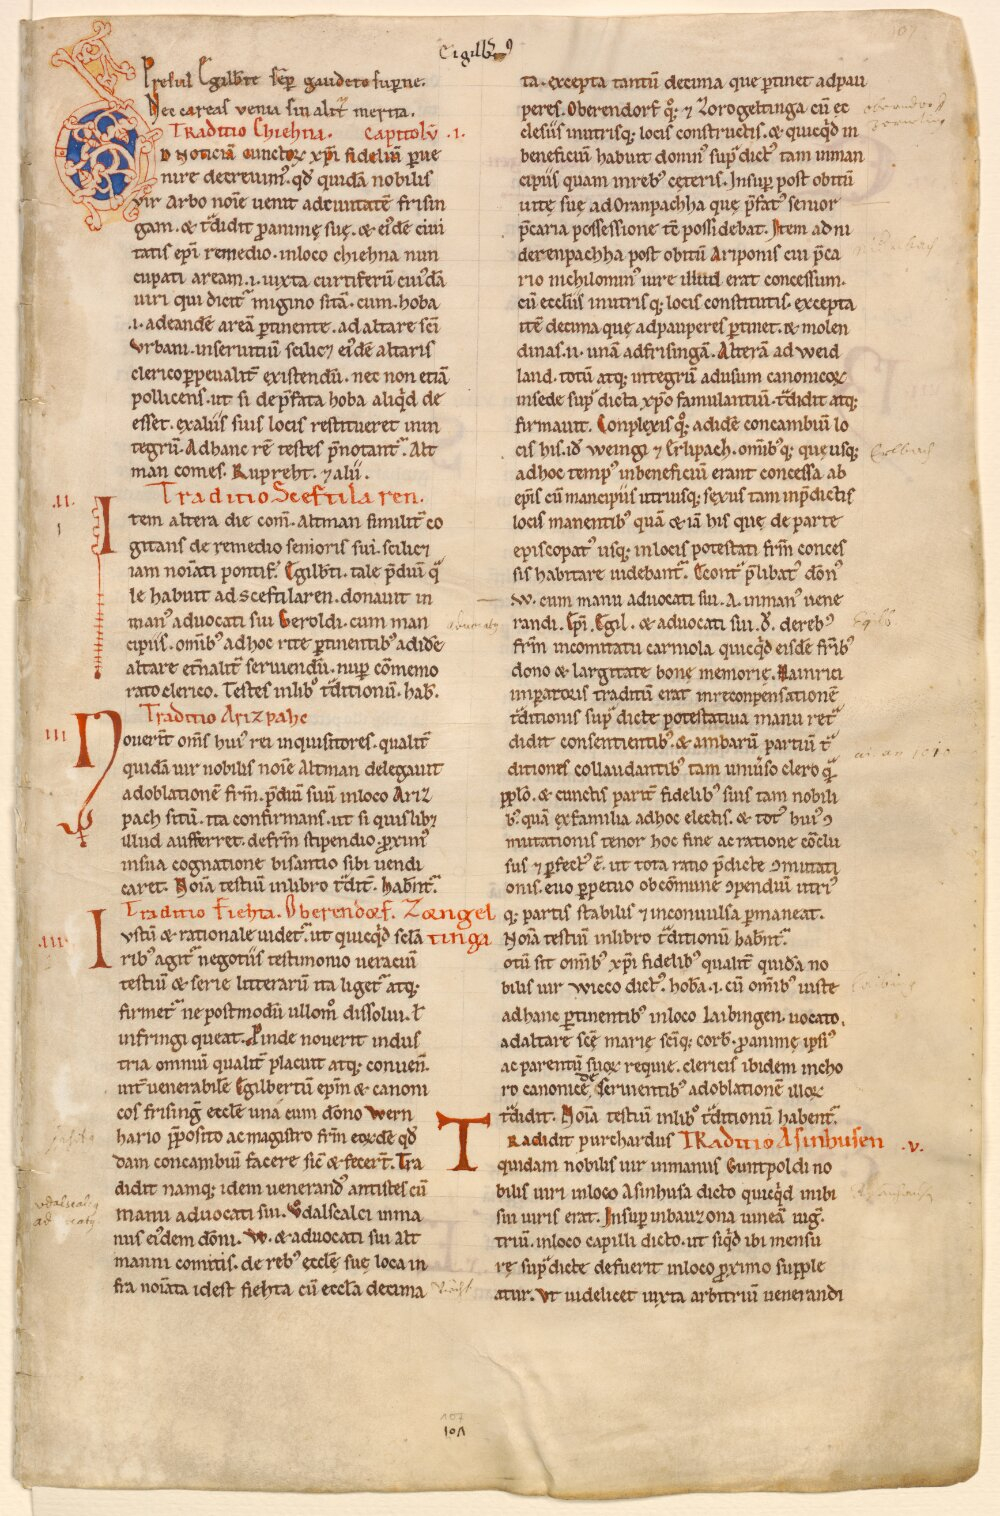 Egilbtꝰ
Presul Egilbte sep gaudeto superne.
Nec careas venia sin alit merita.
Traditio Chiehna. Capitolv .I.
D Noticiā cunctoꝝ xp̄i fideliū ꝑue
nire decreuimꝰ. qd̄ quidā nobilis
vir Arbo noīe uenit adciuitatē frisin
gam. & tͣdidit ꝓ anime sue. & eidē ciui
tatis ep̄i remedio. inloco chiehna nun
cupati aream .I. iuxta curtiferū cuidā
uiri qui dicitͬ migino sitā. cum. hoba
.I. adeandē areā ꝑtinente. ad altare sc̄i
vrbani. inseruitiū scilicꝫ eidē altaris
clerico ꝑpetualit existendū. nec non etiā
pollicens. ut si de p̄fata hoba aliqd de
esset. exaliis suis locis restitueret inin
tegrū. Adhanc rē testes p̄notantͬ. Alt
man comes. Rupreht. ⁊ alii.
.II. Traditio Sceftilaren.
Item altera die com̄. Altman similit co
gitans de remedio senioris sui. scilicꝫ
iam noīati pontif. Egilbti. tale p̄diū q̄
le habuit ad sceftilaren. donauit in
manꝰ aduocati sui Geroldi. cum man
cipiis. omībꝰ adhoc rite ꝑtinentibꝰ adide
altare et̄nalit seruiendū. nup cōmemo
rato clerico. Testes inlibꝰ tͣditionū. hab̄.
III Traditio Arizpahc
Nouerīt om̄s huiꝰ rei inquisitores. qualit
quidā uir nobilis noīe Altman delegauit
adoblationē fr̄m. p̄diū suū inloco Ariz
pach sitū. ita confirmans. ut si quislibꝫ
illud aufferret. defr̄m stipendio. ꝓximꝰ
insua cognatione bisantio sibi uendi
caret. Noīa testiū inlibro tͣdit. habn̄tͬ.
Traditio fiehta. Oberendorf. Zorngel
tinga
.IIII. Ivstū & rationale uidetͬ. ut quicqd̄ sc̄la
ribꝰ agitͬ negotiis testimonio ueraciū
testiū & serie litterarū ita ligetͬ atqꝫ
firmetͬ ne postmodū ullomꝰ dissolui. ł
infringi queat. Pinde nouerit indus
tria omniū qualit placuit atqꝫ conuen̄.
int uenerabilē Egilbertū ep̄m & canoni
cos frisinḡ eccl̄e unā cum dōno wern
hario p̄posito ac magistro fr̄m eoꝝdē qd̄
dam concambiū facere sic̄ & fecert̄. Tra
didit namqꝫ idem uenerandꝰ antistes cū
manu aduocati sui. Vodalscalci inma
nus eidem dōni. W. & aduocati sui alt
manni comitis. de rebꝰ eccl̄e sue loca in
fra noīata idest fiehta cū eccl̄a decima
ta. excepta tantū decima que ꝑtinet adpau
peres. Oberendorf qꝫ ⁊ Zorogeltinga cū ec
clesiis inutrisqꝫ locis constructis. & quicqd̄ in
beneficiū habuit domnꝰ supͣdictꝰ tam inman
cipiis quam inrebꝰ ceteris. Insup post obitū
uite sue ad Oranpachha que p̄fatꝰ senior
p̄caria possessione tē possidebat. Item ad ni
derenpachha post obitū Ariponis cui p̄ca
rio nichilominꝰ iure illud erat concessum.
cū ecclīis inutrisqꝫ locis constitutis. excepta
itē decima que adpauperes ꝑtinet. & molen
dinas. II. unā adfrisingā. Alterā ad weid
land. totū atqꝫ integrū adusum canonicoꝝ
insede supͣ dicta xp̄o famulantiū. tͣdidit atqꝫ
firmauit. Conplexis qꝫ adidē concambiū lo
cis his. id weingi ⁊ Erlipach. omībꝰ qꝫ que usqꝫ
adhoc tempꝰ inbeneficiū erant concessa ab
ep̄is cū mancipiis utriusqꝫ sexus tam inp̄dictis
locis manentibꝰ quā & iā his que de parte
episcopatꝰ usqꝫ inlocis potestati fr̄m conces
sis habitare uidebantͬ. Econtͣ p̄libatꝰ dōnꝰ
W. cum manu aduocati sui. A. inmanꝰ uene
randi. Ep̄i. Egil. & aduocati sui. O. derebꝰ
fr̄m incomitatu carniola quicqd̄ eisdē fr̄ibꝰ
dono & largitate bone memorie. Hainrici
imperatoris traditū erat inreconpensationē
tͣditionis supͣ dicte potestatiua manu retͣ
didit consentientibꝰ & ambarū partiū tͣ
ditiones collaudantibꝰ tam uniuso clero qͣ
pplo. & cunctis parit fidelibꝰ suis tam nobili
bꝰ quā exfamilia adhoc electis. & totꝰ huiꝰ ꝯ
mutationis tenor hoc fine ac ratione cōclu
sus ⁊ ꝑfectꝰ ē. ut tota ratio p̄dicte ꝯmutati
onis. euo ꝑpetuo obcōmune ꝯpendiū utriꝰ
qꝫ partis stabilis ⁊ inconuulsa ꝑmaneat.
Noīa testiū inlibro tͣditionū habn̄tͬ.
otū sit omībꝰ xp̄i fidelibꝰ qualit quidā no
bilis uir wicco dictꝰ. hoba .I. cū omībꝰ iuste
adhanc ꝑtinentibꝰ inloco Iaibingen. uocato.
adaltare sc̄e marie sc̄iqꝫ corb̄. ꝓ anime ipsiꝰ
ac parentū suoꝝ requie. clericis ibidem incho
ro canonice dō seruientibꝰ adoblationē illoꝝ
tͣdidit. Noīa testiū inlibꝰ tͣditionū habentͬ.
TRadidit purchardus TRaditio Asinhusen .v.
quidam nobilis uir inmanus Guntpoldi no
bilis uiri inloco Asinhusa dicto quicqd̄ inibi
sui iuris erat. Insup inbauzona uineā iuḡ.
triū. inloco capilli dicto. ut siqd ibi mensu
re supͣdicte defuerit inloco ꝓximo supple
atur. Vt uidelicet iuxta arbitriū uenerandi
107
101